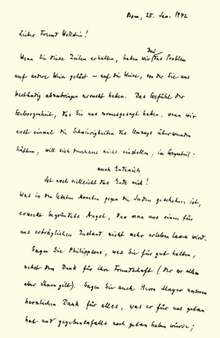 Bonn, 25. Jan. 1942
Lieber Freund Waldstein!
Wenn Sie diese Zeilen erhalten, haben wir das Problem
auf andere Weise gelöst — auf die Weise, von der Sie uns
beständig abzubringen versucht haben. Das Gefühl der
Geborgenheit, das Sie uns vorausgesagt haben, wenn wir
erst einmal die Schwierigkeiten des Umzugs überwunden
hätten, will sich durchaus nicht einstellen, im Gegenteil:
auch Endenich
Ist noch vielleicht das Ende nich!
Was in den letzten Monaten gegen die Juden geschehen ist,
erweckt begründete Angst, dass man uns einen für
uns erträglichen Zustand nicht mehr erleben lassen wird.
Sagen Sie Philippson, was Sie für gut halten,
nebst dem Dank für Ihre Freundschaft (der vor allem
aber Ihnen gilt). Sagen Sie auch Herrn Mayer unseren
herzlichen Dank für alles, was er für uns getan
hat und gegebenenfalls noch getan haben würde;